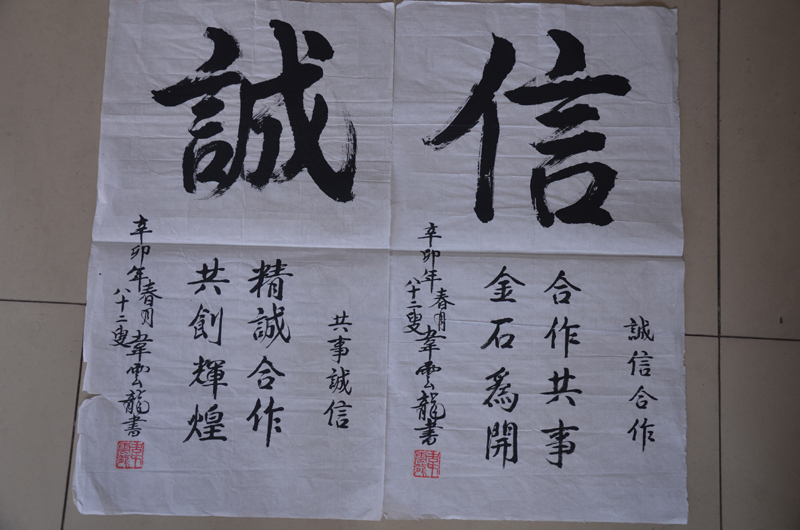 信
誠信合作
合作共事
金石為開
辛卯年春月
八十二叟
韋雲龍書
誠
共事誠信
精誠合作
共創輝煌
辛卯年春月
八十二叟
韋雲龍書